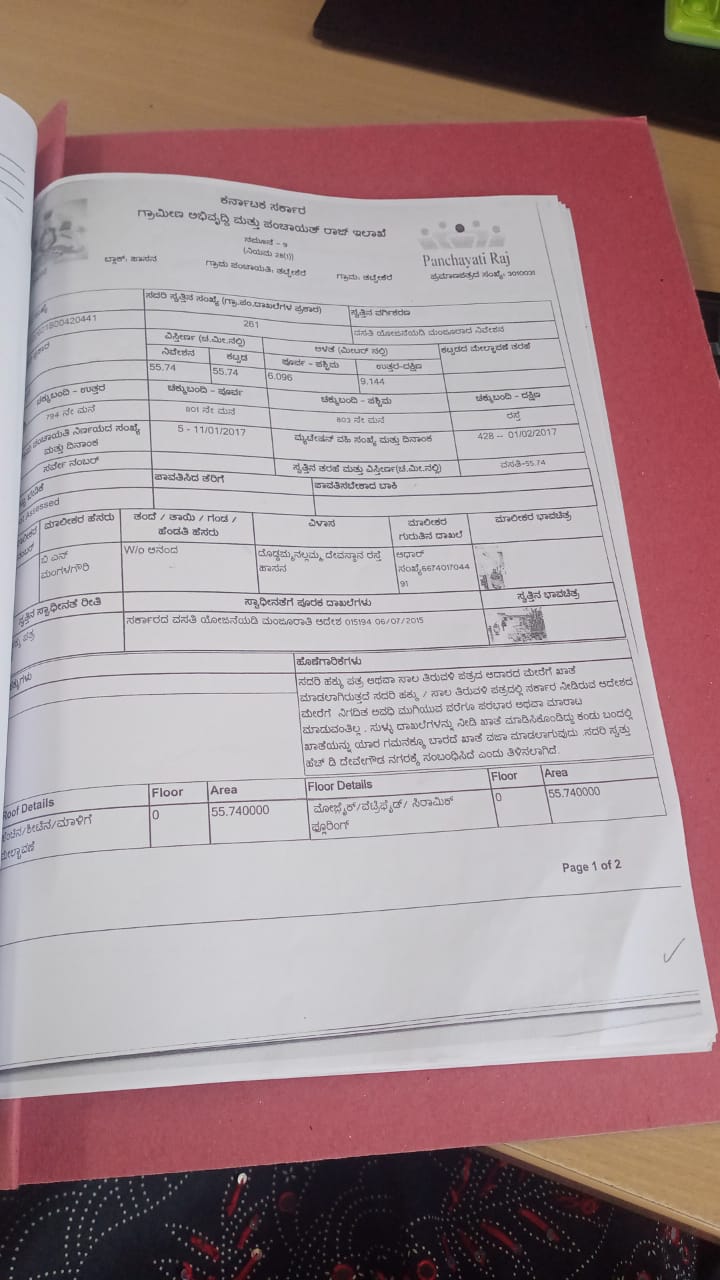 ಕರ್ನಾಟಕ ಸರ್ಕಾರ
ಗ್ರಾಮೀಣ ಅಭಿವೃದ್ಧಿ ಮತ್ತು ಪಂಚಾಯತ್ ರಾಜ್ ಇಲಾಖೆ
ನಮೂನೆ - 9
(ನಿಯಮ 28(1))
Panchayati Raj
ಬ್ಲಾಕ್: ಹಾಸನ ಗ್ರಾಮ ಪಂಚಾಯತಿ: ತಟ್ಟೇಕೆರೆ ಗ್ರಾಮ: ತಟ್ಟೇಕೆರೆ ಪ್ರಮಾಣಪತ್ರದ ಸಂಖ್ಯೆ:
ಸದರಿ ಸ್ವತ್ತಿನ ಸಂಖ್ಯೆ (ಗ್ರಾ.ಪಂ.ದಾಖಲೆಗಳ ಪ್ರಕಾರ) ಸ್ವತ್ತಿನ ವರ್ಗೀಕರಣ
21800420441 261 ವಸತಿ ಯೋಜನೆಯಡಿ ಮಂಜೂರಾದ ನಿವೇಶನ
ವಿಸ್ತೀರ್ಣ (ಚ.ಮೀ.ನಲ್ಲಿ) ಅಳತೆ (ಮೀಟರ್ ನಲ್ಲಿ) ಕಟ್ಟಡದ ಮೇಲ್ಚಾವಣಿ ತರಹೆ
ನಿವೇಶನ ಕಟ್ಟಡ ಪೂರ್ವ - ಪಶ್ಚಿಮ ಉತ್ತರ-ದಕ್ಷಿಣ
55.74 55.74 6.096 9.144
ಚಕ್ಕುಬಂದಿ - ಉತ್ತರ ಚಕ್ಕುಬಂದಿ - ಪೂರ್ವ ಚಕ್ಕುಬಂದಿ - ಪಶ್ಚಿಮ ಚಕ್ಕುಬಂದಿ - ದಕ್ಷಿಣ
794 ನೇ ಮನೆ 801 ನೇ ಮನೆ 803 ನೇ ಮನೆ ರಸ್ತೆ
ಪಂಚಾಯತಿ ನಿರ್ಣಯದ ಸಂಖ್ಯೆ ಮತ್ತು ದಿನಾಂಕ 5 - 11/01/2017 ಮ್ಯುಟೇಷನ್ ವಹಿ ಸಂಖ್ಯೆ ಮತ್ತು ದಿನಾಂಕ 428 -- 01/02/2017
ಸರ್ವೇ ನಂಬರ್ ಸ್ವತ್ತಿನ ತರಹೆ ಮತ್ತು ವಿಸ್ತೀರ್ಣ(ಚ.ಮೀ.ನಲ್ಲಿ) ವಸತಿ-55.74
ಪಾವತಿಸಿದ ತೆರಿಗೆ ಪಾವತಿಸಬೇಕಾದ ಬಾಕಿ
Assessed
ಮಾಲೀಕರ ಹೆಸರು ತಂದೆ / ತಾಯಿ / ಗಂಡ / ಹೆಂಡತಿ ಹೆಸರು ವಿಳಾಸ ಮಾಲೀಕರ ಗುರುತಿನ ದಾಖಲೆ ಮಾಲೀಕರ ಭಾವಚಿತ್ರ
ಬಿ ಎನ್ W/o ಆನಂದ ದೊಡ್ಡಮ್ಮನಲ್ಲಮ್ಮ ದೇವಸ್ಥಾನ ರಸ್ತೆ ಆಧಾರ್
ಮಂಗಳಗೌರಿ ಹಾಸನ ಸಂಖ್ಯೆ6674017044
91
ಸ್ವತ್ತಿನ ಸ್ವಾಧೀನತೆ ರೀತಿ ಸ್ವಾಧೀನತೆಗೆ ಪೂರಕ ದಾಖಲೆಗಳು ಸ್ವತ್ತಿನ ಭಾವಚಿತ್ರ
ಪತ್ರ ಸರ್ಕಾರದ ವಸತಿ ಯೋಜನೆಯಡಿ ಮಂಜೂರಾತಿ ಆದೇಶ 015194 06/07/2015
ಹೊಣೆಗಾರಿಕೆಗಳು
ಸದರಿ ಹಕ್ಕು ಪತ್ರ ಅಥವಾ ಸಾಲ ತಿರುವಳಿ ಪತ್ರದ ಆದಾರದ ಮೇರೆಗೆ ಖಾತೆ
ಮಾಡಲಾಗಿರುತ್ತದೆ ಸದರಿ ಹಕ್ಕು / ಸಾಲ ತಿರುವಳಿ ಪತ್ರದಲ್ಲಿ ಸರ್ಕಾರ ನೀಡಿರುವ ಆದೇಶದ
ಮೇರೆಗೆ ನಿಗದಿತ ಅವಧಿ ಮುಗಿಯುವ ವರೆಗೂ ಪರಭಾರ ಅಥವಾ ಮಾರಾಟ
ಮಾಡುವಂತಿಲ್ಲ . ಸುಳ್ಳು ದಾಖಲೆಗಳನ್ನು ನೀಡಿ ಖಾತೆ ಮಾಡಿಸಿಕೊಂಡಿದ್ದು ಕಂಡು ಬಂದಲ್ಲಿ
ಖಾತೆಯನ್ನು ಯಾರ ಗಮನಕ್ಕೂ ಬಾರದೆ ಖಾತೆ ವಜಾ ಮಾಡಲಾಗುವುದು .ಸದರಿ ಸ್ವತ್ತು
ಹೆಚ್ ಡಿ ದೇವೇಗೌಡ ನಗರಕ್ಕೆ ಸಂಬಂಧಿಸಿದೆ ಎಂದು ತಿಳಿಸಲಾಗಿದೆ.
Roof Details Floor Area Floor Details Floor Area
ಹೆಂಚಿನ/ಶೀಟಿನ/ಮಾಳಿಗೆ 0 55.740000 ಮೋಜೈಕ್/ವೆಟ್ರಿಫೈಡ್/ ಸಿರಾಮಿಕ್ 0 55.740000
ಮೇಲ್ಚಾವಣಿ ಫ್ಲೂರಿಂಗ್
Page 1 of 2